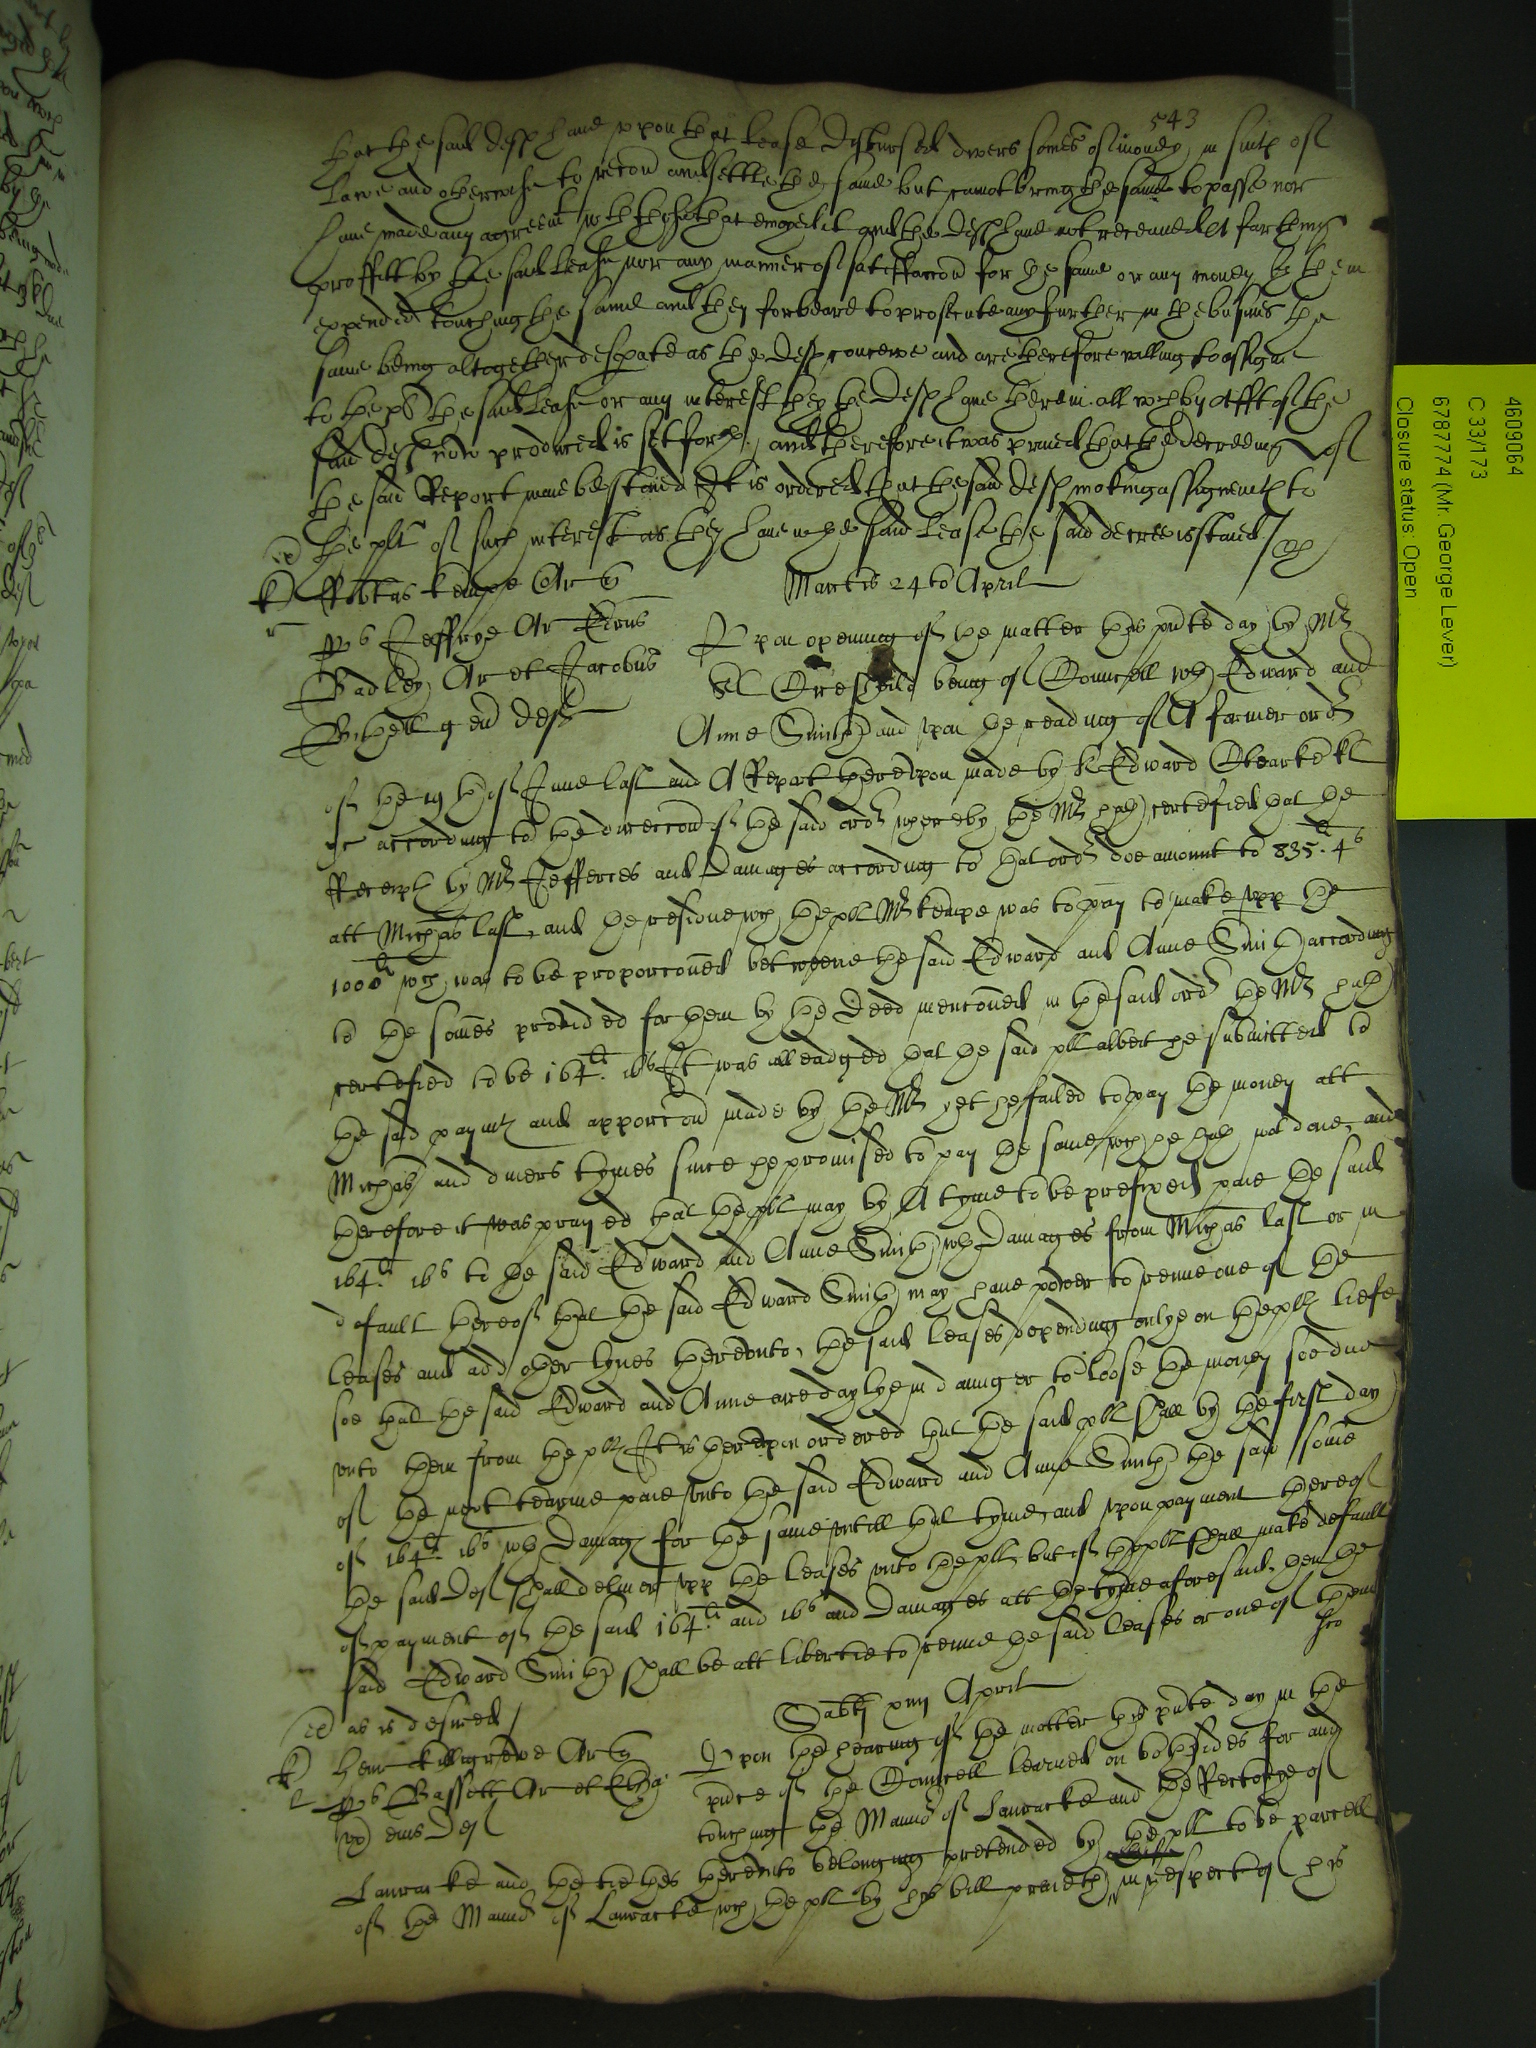 543
that the said deftes have uppon that lease disbursed divers somes of money in suite of
Lawe and otherwise to recou and settle the same but cannot bring the same to passe nor
have made any agreemt wth those that enioyed it and the deftes have not receaued A farthing
proffitt by the said Lease nor any manner of satisfaccon for the same or any money by them
expended touching the same and they forbeare to prosecute any further in the busines the
same being altogether desperate as the deftes conceive and are therefore willing to assigne
to the plt the said Lease or any interest they the deftes have therein all wch by Afft of the
said deftes now produced is sett forth, and therefore it was praied that the decreeing of
the said Report maie be staied It is ordered that the said deftes making assignemts to
the plt of such interest as they have in the said Lease the said decree is staied
Martis 24to April
Kempe Ar quer
vs Jeffreye Ar
Badley Ar et Jacobus
Bishell gen deftes
Upon opening of the matter this pnte day by Mr
being of Councell wth Edward and
Anne Smith and upon the reading of A former order
of the of June last and A Report thereupon made by Sr Edward Clearke kt
&c according to the direccon of the said order whereby the Mr hath certefied that the
Receipts by Mr Jefferies and Damages according to that order doe amount to 835li 4s
att Michas last, and the residue wch the plt Mr Kempe was to pay to make upp the
1000li wch was to be proporconed betweene the said Edward and Anne Smith according
to the somes provided for them by the Deed menconed in the said order the Mr hath
certefied to be 164li 16s It was alleadged that the said plt albeit he submitted to
the said paymt and apporcon made by the Mr yet he failed to pay the money att
Michas and divers tymes since he promised to pay the same wch he hath not done, and
therefore it was prayed that the plt may by A tyme to be prefixed paie the said
164li 16s to the said Edward and Anne Smith wth Damages from Michas last or in
default thereof that the said Edward Smith may have power to renue one of the
leases and add other lyves thereunto, the said leases depending onlye on the plts liefe
soe that the said Edward and Anne are daylye in daunger to loose the money soe due
unto them from the plt It is thereupon ordered that the said plt shall by the first day
of the next tearme paie unto the said Edward and Anne Smith the said some
of 164li 16s wth Damages for the same untill that tyme, and upon payment thereof
the said Deftes shall deliver upp the leases unto the plt, but if the plt shall make default
of payment of the said 164li and 16s and Damages att the tyme aforesaid, then the
said Edward Smith shall be att libertie to renue the said leases or one of them
as is desired
Sabbi xiiij April
Henr Killigrewe Ar quer
vs Bassett Ar et
ux eius Deftes
Upon the hearing of the matter this pnte day in the
pnce of the Councell learned on both sides for and
touching the Mannor of Lanracke and the Rectorye of
Lanracke and the tiethes thereunto belonging pretended by the plt to be parcell
of the Mannor of Lanracke wch the plt by his bill praieth in respect of his
4609064
C 33/173
6787774 (Mr. George Lever)
Closure status: Open